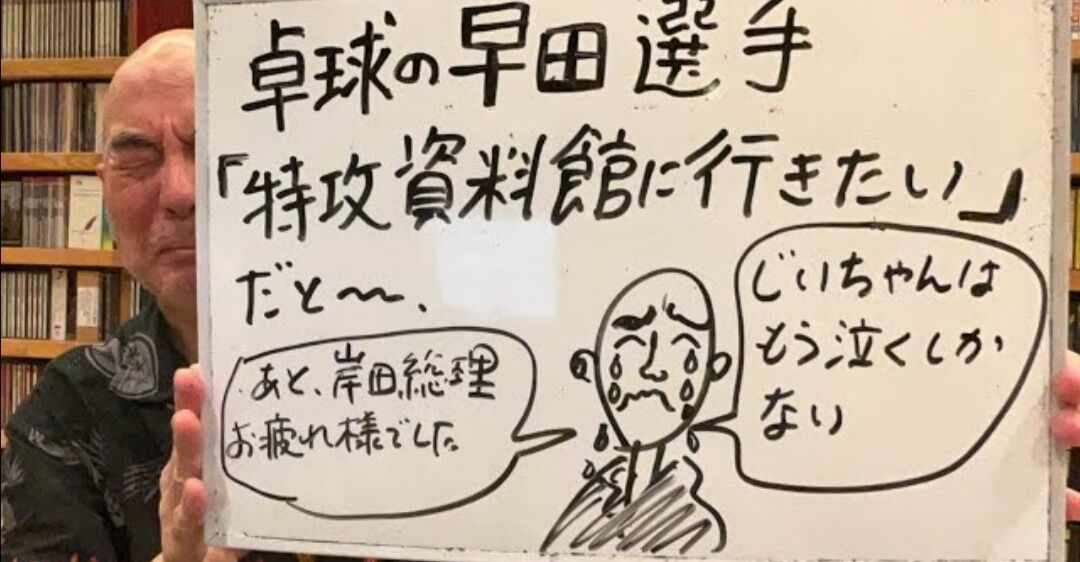 卓球の早田選手
「特攻資料館に行きたい」
だと〜、
じいちゃんは
もう泣くしか
ない
あと、岸田総理
お疲れ様でした